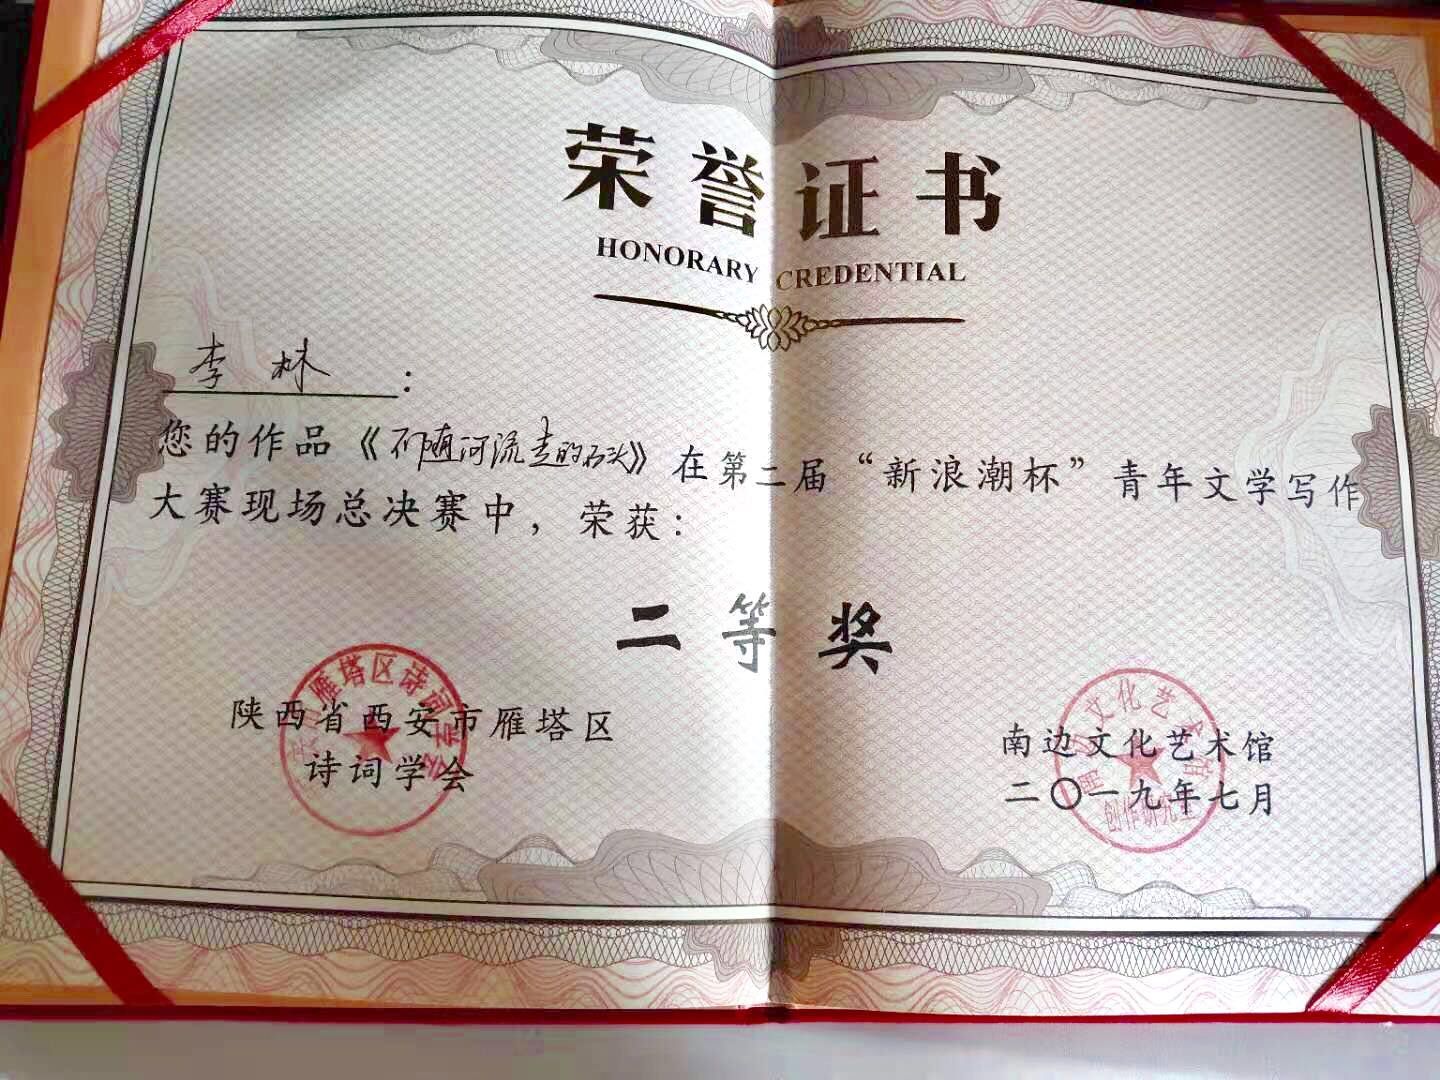 荣誉证书
HONORARY CREDENTIAL
李林：
您的作品《不随河流走的石头》在第二届“新浪潮杯”青年文学写作
大赛现场总决赛中，荣获：
二等奖
陕西省西安市雁塔区
诗词学会
雁塔区诗词学会
南边文化艺术馆
二〇一九年七月
文化艺术馆
创作研究室